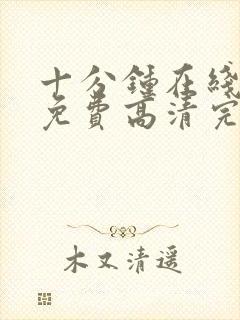 十分鍾在綫
免費高清完
木又清遥